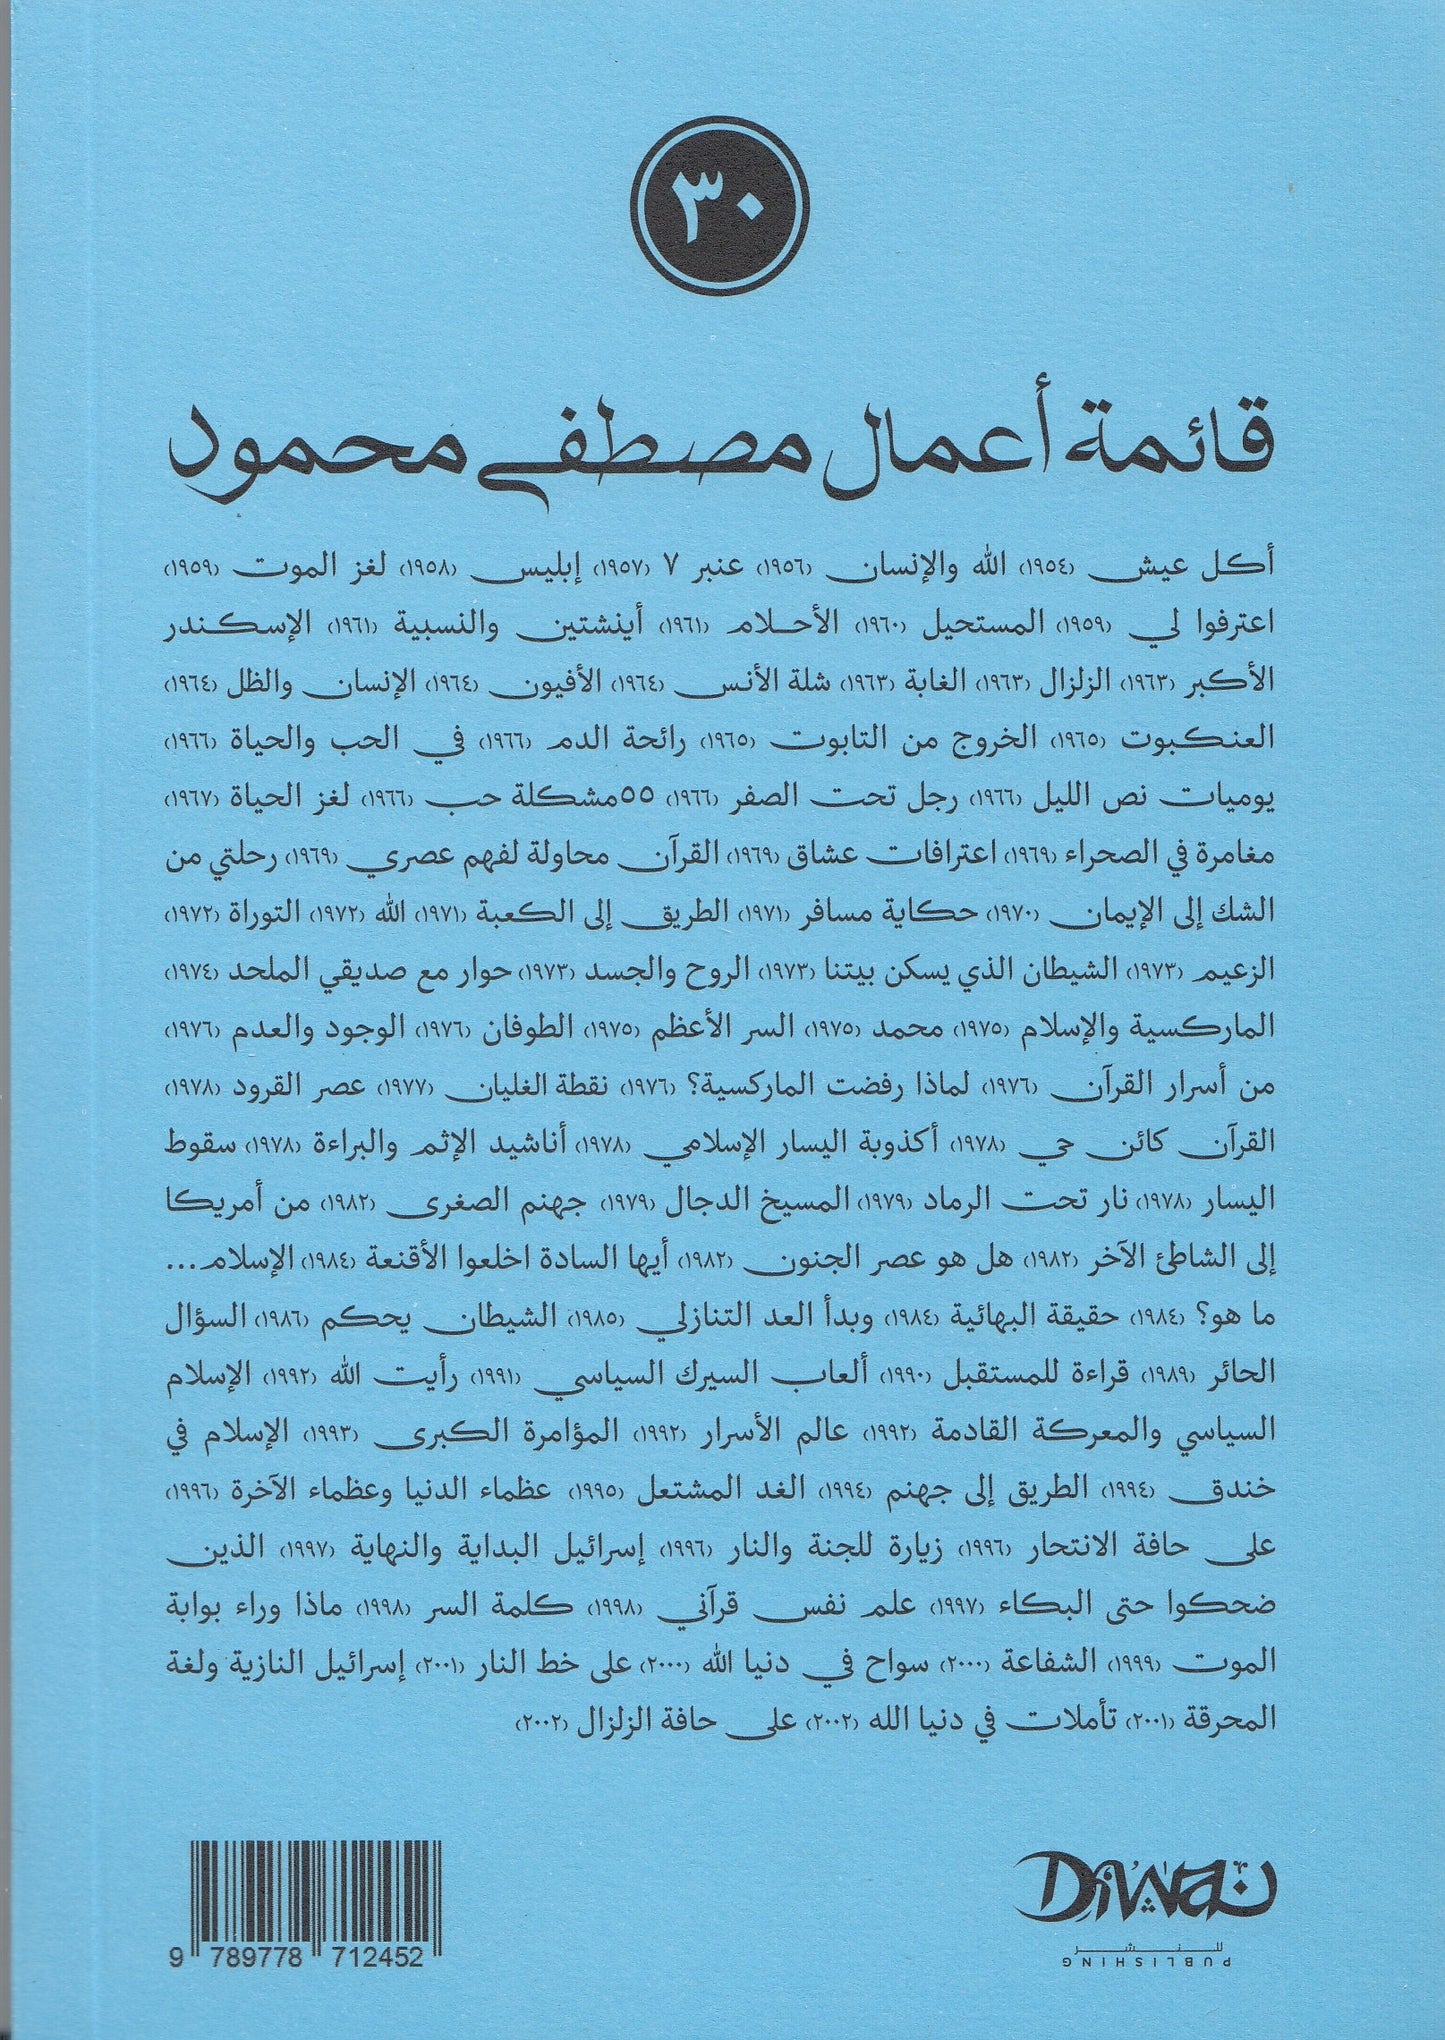 ٣٠
قائمة أعمال مصطفى محمود
أكل عيش (١٩٥٤) الله والإنسان (١٩٥٦) عنبر ٧ (١٩٥٧) إبليس (١٩٥٨) لغز الموت (١٩٥٩)
اعترفوا لي (١٩٥٩) المستحيل (١٩٦٠) الأحلام (١٩٦١) أينشتين والنسبية (١٩٦١) الإسكندر
الأكبر (١٩٦٣) الزلزال (١٩٦٣) الغابة (١٩٦٣) شلة الأنس (١٩٦٤) الأفيون (١٩٦٤) الإنسان والظل (١٩٦٤)
العنكبوت (١٩٦٥) الخروج من التابوت (١٩٦٥) رائحة الدم (١٩٦٦) في الحب والحياة (١٩٦٦)
يوميات نص الليل (١٩٦٦) رجل تحت الصفر (١٩٦٦) ٥٥مشكلة حب (١٩٦٦) لغز الحياة (١٩٦٧)
مغامرة في الصحراء (١٩٦٩) اعترافات عشاق (١٩٦٩) القرآن محاولة لفهم عصري (١٩٦٩) رحلتي من
الشك إلى الإيمان (١٩٧٠) حكاية مسافر (١٩٧١) الطريق إلى الكعبة (١٩٧١) الله (١٩٧٢) التوراة (١٩٧٢)
الزعيم (١٩٧٣) الشيطان الذي يسكن بيتنا (١٩٧٣) الروح والجسد (١٩٧٣) حوار مع صديقي الملحد (١٩٧٤)
الماركسية والإسلام (١٩٧٥) محمد (١٩٧٥) السر الأعظم (١٩٧٥) الطوفان (١٩٧٦) الوجود والعدم (١٩٧٦)
من أسرار القرآن (١٩٧٦) لماذا رفضت الماركسية؟ (١٩٧٦) نقطة الغليان (١٩٧٧) عصر القرود (١٩٧٨)
القرآن كائن حي (١٩٧٨) أكذوبة اليسار الإسلامي (١٩٧٨) أناشيد الإثم والبراءة (١٩٧٨) سقوط
اليسار (١٩٧٨) نار تحت الرماد (١٩٧٩) المسيخ الدجال (١٩٧٩) جهنم الصغرى (١٩٨٢) من أمريكا
إلى الشاطئ الآخر (١٩٨٢) هل هو عصر الجنون (١٩٨٢) أيها السادة اخلعوا الأقنعة (١٩٨٤) الإسلام...
ما هو؟ (١٩٨٤) حقيقة البهائية (١٩٨٤) وبدأ العد التنازلي (١٩٨٥) الشيطان يحكم (١٩٨٦) السؤال
الحائر (١٩٨٩) قراءة للمستقبل (١٩٩٠) ألعاب السيرك السياسي (١٩٩١) رأيت الله (١٩٩٢) الإسلام
السياسي والمعركة القادمة (١٩٩٢) عالم الأسرار (١٩٩٢) المؤامرة الكبرى (١٩٩٣) الإسلام في
خندق (١٩٩٤) الطريق إلى جهنم (١٩٩٤) الغد المشتعل (١٩٩٥) عظماء الدنيا وعظماء الآخرة (١٩٩٦)
على حافة الانتحار (١٩٩٦) زيارة للجنة والنار (١٩٩٦) إسرائيل البداية والنهاية (١٩٩٧) الذين
ضحكوا حتى البكاء (١٩٩٧) علم نفس قرآني (١٩٩٨) كلمة السر (١٩٩٨) ماذا وراء بوابة
الموت (١٩٩٩) الشفاعة (٢٠٠٠) سواح في دنيا الله (٢٠٠٠) على خط النار (٢٠٠١) إسرائيل النازية ولغة
المحرقة (٢٠٠١) تأملات في دنيا الله (٢٠٠٢) على حافة الزلزال (٢٠٠٢)
9 789778 712452
DiWaN
للنشر
PUBLISHING